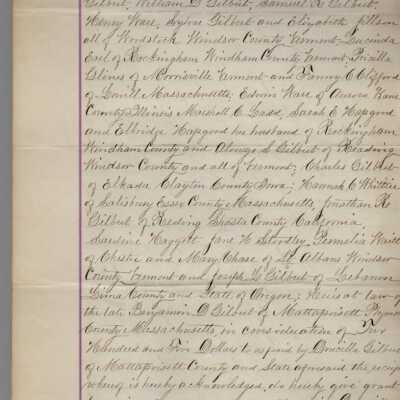 Gilbert, William D Gilbert, Samuel R Gilbert,
Henry Ware, Sylvia Gilbert and Elizabeth
all of Woodstock Windsor County Vermont, Lucinda
Earl of Rockingham Windham County Vermont, Priscilla
of Morrisville Vermont and Fanny C Clifford
of Lowell Massachusetts; Edwin Ware of Aurora Kane
County Illinois Marshall C Ladd, Sarah E Hapgood
and Elbridge Hapgood her husband of Rockingham
Windham County and Alonzo S Gilbert of Reading
Windsor County and all of Vermont; Charles Gilbert
of Elkada, Clayton County Iowa; Hannah C Whittier
of Salisbury Essex County Massachusetts, Jonathan R
Gilbert of Reding Shasta County California
Haggett Jane H Permelia Waitt
of and Mary Chase of St Albans Windsor
County Vermont and Joseph G Gilbert of Lebanon
County and State of Oregon; Heirs at law of
the late Benjamin D Gilbert of Mattapoisett
County Massachusetts, in consideration of
Hundred and Five Dollars to us paid by Drucilla Gilbert
of Mattapoisett County and State aforesaid the
whereof is hereby acknowledged, do hereby give grant